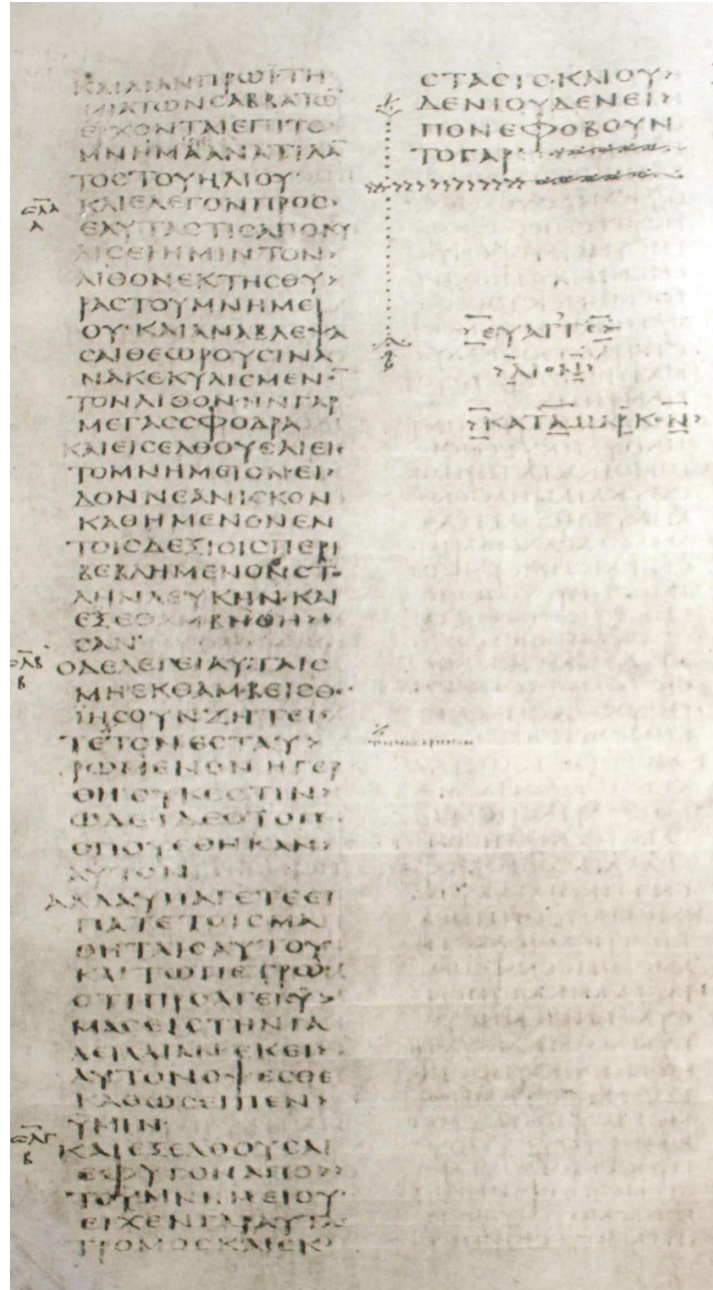 ΚΑΙΛΙΑΝΠΡΩΙΤΗ
ΜΙΑΤΩΝϹΑΒΒΑΤΩ
ΕΡΧΟΝΤΑΙΕΠΙΤΟ
ΜΝΗΜΑΑΝΑΤΙΛΑ
ΤΟϹΤΟΥΗΛΙΟΥ·
ϹΛΑ
Α
ΚΑΙΕΛΕΓΟΝΠΡΟϹ
ΕΑΥΤΑϹΤΙϹΑΠΟΚΥ
ΛΙϹΕΙΗΜΙΝΤΟΝ
ΛΙΘΟΝΕΚΤΗϹΘΥ>
ΡΑϹΤΟΥΜΝΗΜΕΙ
ΟΥ·ΚΑΙΑΝΑΒΛΕΨΑ
ϹΑΙΘΕΩΡΟΥϹΙΝΑ
ΝΑΚΕΚΥΛΙϹΜΕΝΟ
ΤΟΝΛΙΘΟΝ·ΗΝΓΑΡ
ΜΕΓΑϹϹΦΟΔΡΑ
ΚΑΙΕΙϹΕΛΘΟΥϹΑΙΕΙϹ
ΤΟΜΝΗΜΕΙΟΝΕΙ
ΔΟΝΝΕΑΝΙϹΚΟΝ
ΚΑΘΗΜΕΝΟΝΕΝ
ΤΟΙϹΔΕΞΙΟΙϹΠΕΡΙ
ΒΕΒΛΗΜΕΝΟΝϹΤΟ
ΛΗΝΛΕΥΚΗΝ·ΚΑΙ
ΕΞΕΘΑΜΒΗΘΗ>
ϹΑΝ
ϹΛΒ
Β
ΟΔΕΛΕΓΕΙΑΥΤΑΙϹ
ΜΗΕΚΘΑΜΒΕΙϹΘΕ
ΙΗϹΟΥΝΖΗΤΕΙ>
ΤΕΤΟΝΕϹΤΑΥ>
ΡΩΜΕΝΟΝΗΓΕΡ
ΘΗΟΥΚΕϹΤΙΝ>
ΩΔΕΙΔΕΟΤΟΠΟϹ
ΟΠΟΥΕΘΗΚΑΝ>
ΑΥΤΟΝ
ΑΛΛΑΥΠΑΓΕΤΕΕΙ
ΠΑΤΕΤΟΙϹΜΑ
ΘΗΤΑΙϹΑΥΤΟΥ
ΚΑΙΤΩΠΕΤΡΩ
ΟΤΙΠΡΟΑΓΕΙΫ>
ΜΑϹΕΙϹΤΗΝΓΑ
ΛΕΙΛΑΙΑΝΕΚΕΙ
ΑΥΤΟΝΟΨΕϹΘΕ
ΚΑΘΩϹΕΙΠΕΝ>
ΫΜΙΝ
ϹΛΓ
Β
ΚΑΙΕΞΕΛΘΟΥϹΑΙ
ΕΦΥΓΟΝΑΠΟ>>
ΤΟΥΜΝΗΜΕΙΟΥ·
ΕΙΧΕΝΓΑΡΑΥΤΑϹ
ΤΡΟΜΟϹΚΑΙΕΚ>
ϹΤΑϹΙϹ·ΚΑΙΟΥ>
ΔΕΝΙΟΥΔΕΝΕΙ>
ΠΟΝΕΦΟΒΟΥΝ
ΤΟΓΑΡ·
ΕΥΑΓΓΕ
ΛΙΟΝ
ΚΑΤΑΜΑΡΚΟΝ